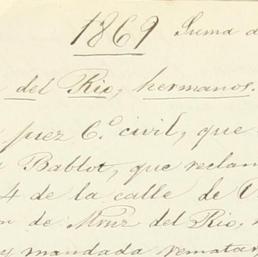 1869 Suma d
del Rio, hermanos.
juez 6.º civil, que
Bablot, que reclam
4 de la calle de
n de Mrnz del Rio,
es mandada rematar